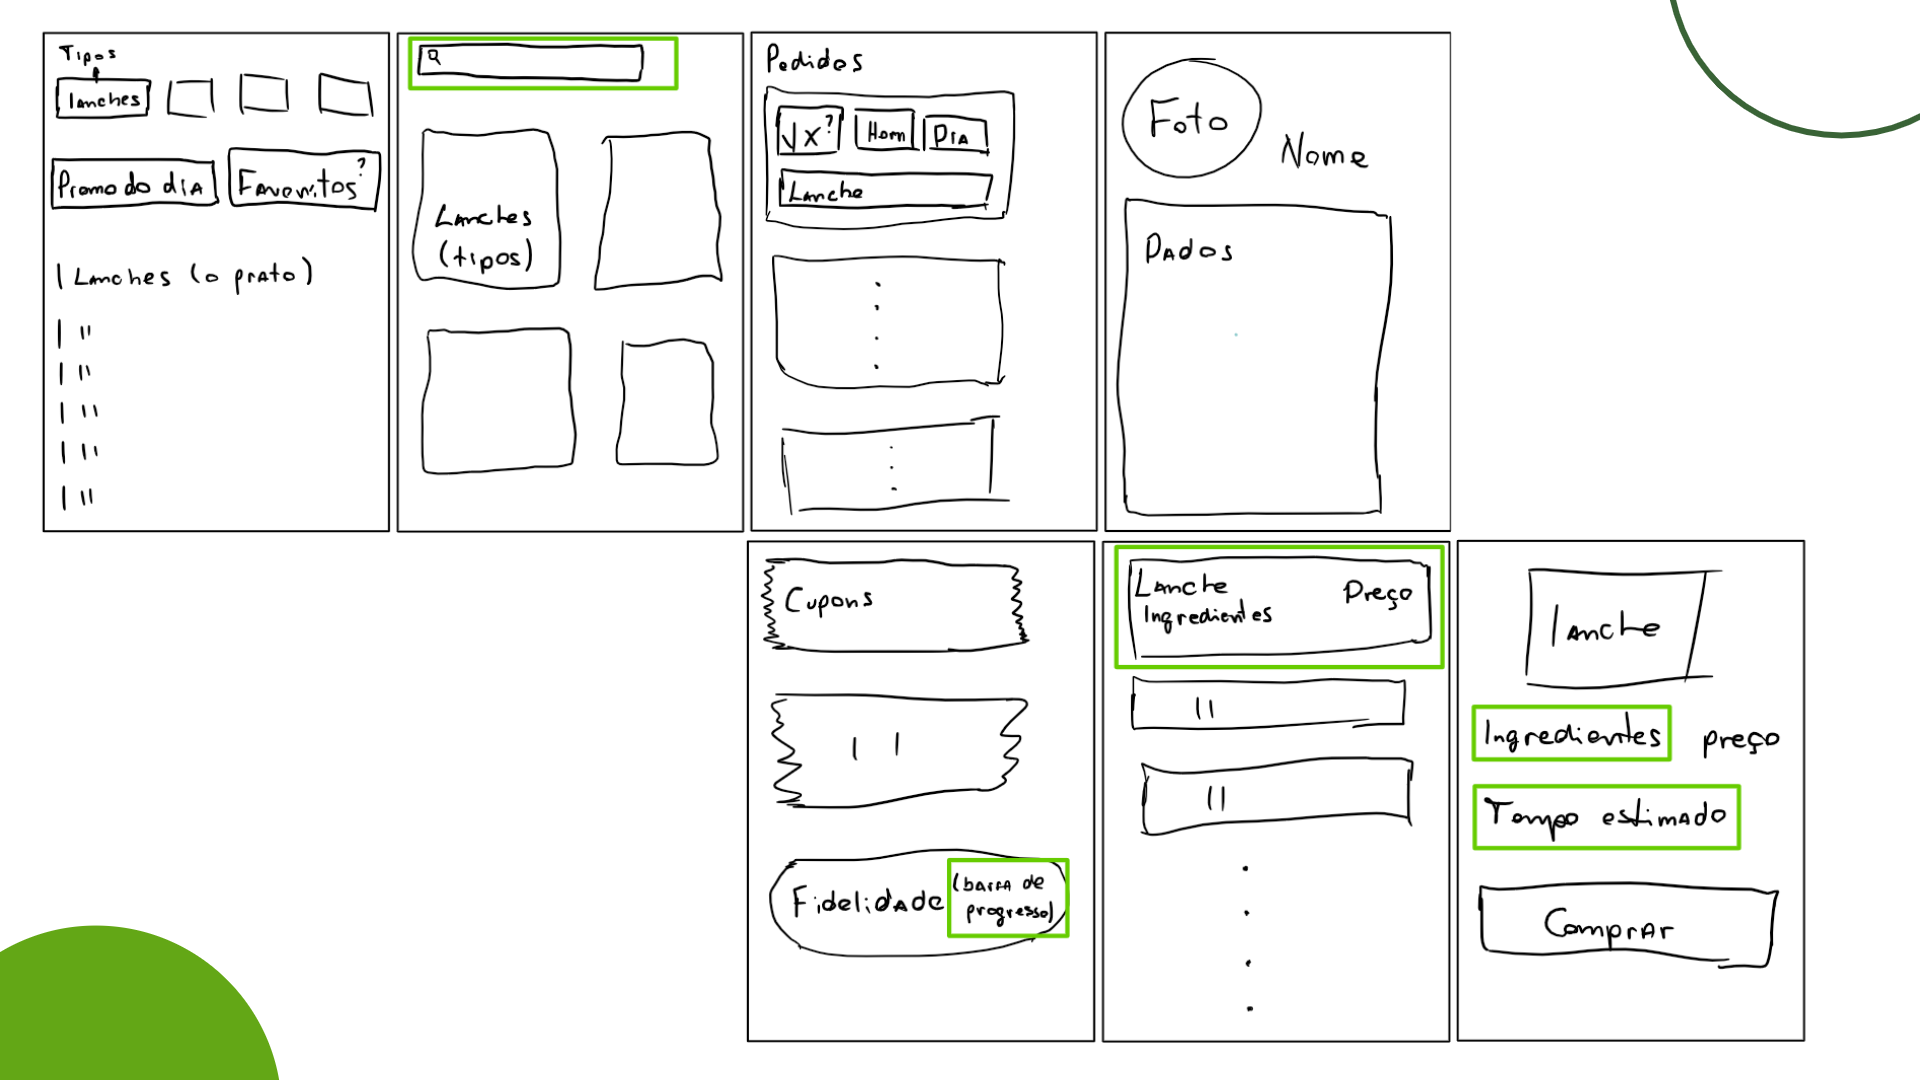 Tipos
lanches
Promo do dia
Favoritos?
Lanches (o prato)
"
"
"
"
"
Lanches
(tipos)
Pedidos
√x? Hora Dia
Lanche
Foto
Nome
Dados
Cupons
Fidelidade (barra de
progresso)
Lanche Preço
Ingredientes
"
"
lanche
Ingredientes preço
Tempo estimado
Comprar